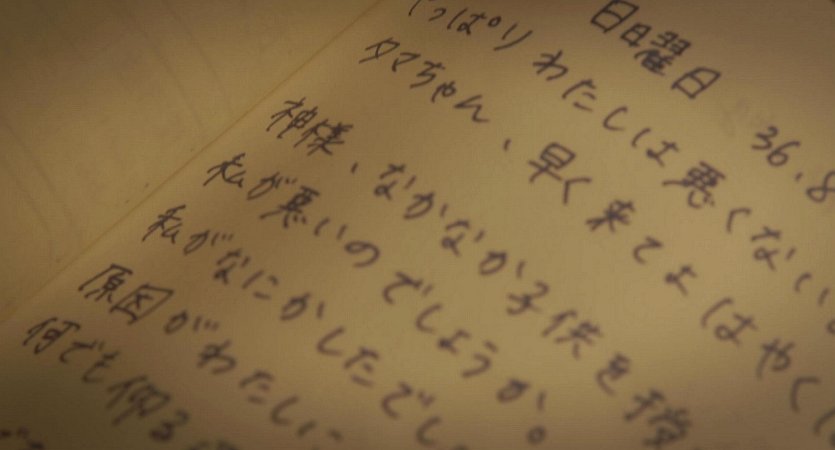 日曜日 36.8
っぱりわたしは悪くない
タマちゃん、早く来てよはやく
神様、なかなか子供を授
私が悪いのでしょうか。
私がなにかしたでし
原因がわたしに
何でも仰る